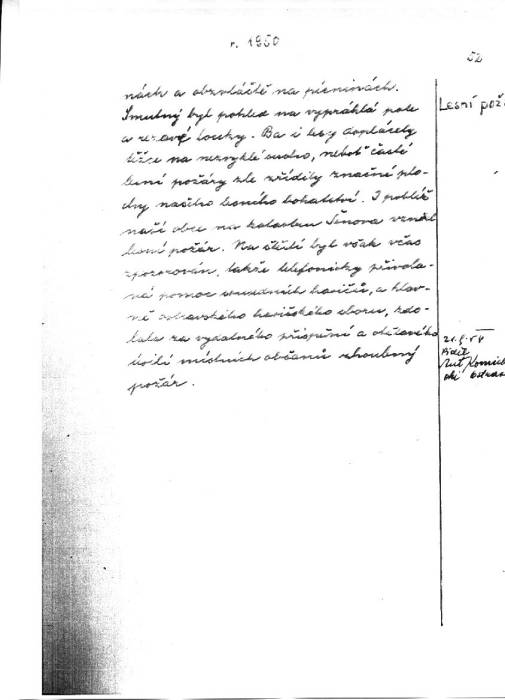 r. 1950
52
nách a obzvláště na písninách.
Smutný byl pohled na vyprahlá pole
a rezavé louky. Ba i lesy doplácely
těžce na nezvyklé sucho, neboť časté
lesní požáry zle zřídily značné plo-
chy našeho lesního bohatství. I poblíž
naší obce na katastru Šenova vznikl
lesní požár. Na štěstí byl však včas
zpozorován, takže telefonicky přivola-
ná pomoc sousedních hasičů, a hlav-
ně ostravského hasičského sboru, zdo-
lala za vydatného přispění a obětavého
úsilí místních občanů zhoubný
požár.
Lesní pož
21.